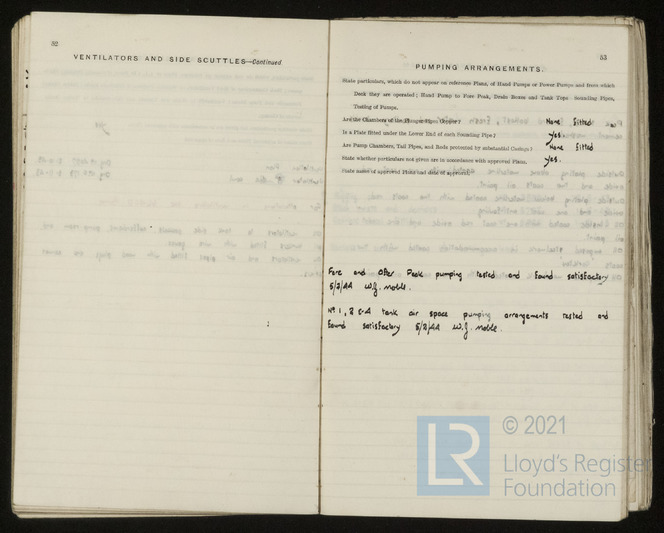 52
VENTILATORS AND SIDE SCUTTLES—Continued
53
PUMPING ARRANGEMENTS.
State particulars, which do not appear on reference Plans, of Hand Pumps or Power Pumps and from which
Deck they are operated; Hand Pump to Fore Peak, Drain Boxes and Tank Tops. Sounding Pipes,
Testing of Pumps.
Are the Chambers of the Plunger Pipes Copper? None fitted
Is a Plate fitted under the Lower End of each Sounding Pipe? yes.
Are Pump Chambers, Tail Pipes, and Rods protected by substantial Casings? None fitted
State whether particulars not given are in accordance with approved Plans. yes.
State name of approved Plans and date of approval.
Fore and After Peak pumping tested and found satisfactory
5/2/44 W.J. Noble.
Nº 1, 2 & 4 tank air space pumping arrangements tested and
found satisfactory 5/2/44 W.J. Noble.
LR
© 2021
Lloyd's Register
Foundation